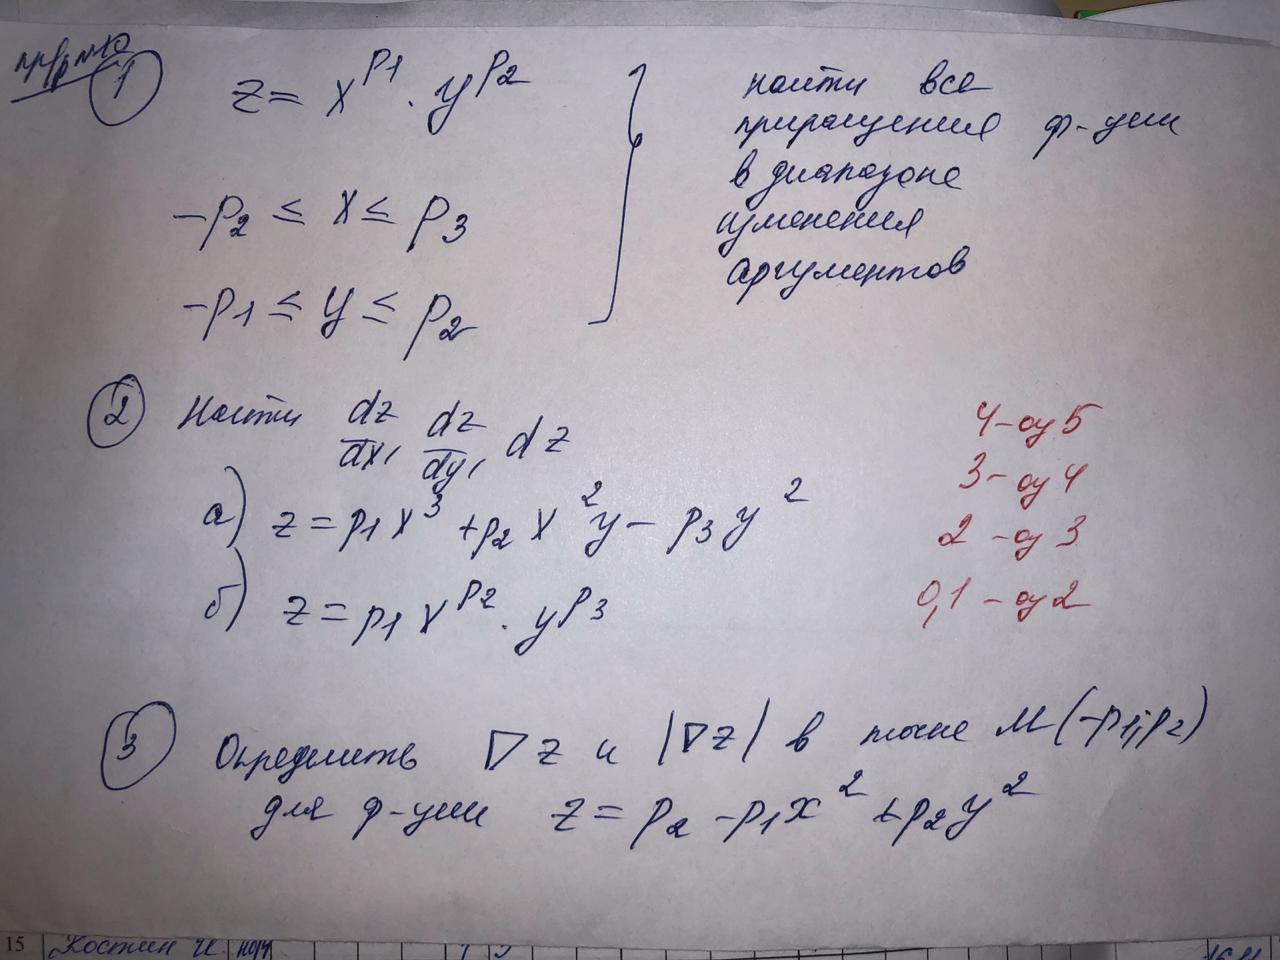 пр/р №10
① z = x^p1 · y^p2
-p2 ≤ x ≤ p3
-p1 ≤ y ≤ p2
найти все
приращения ф-ции
в диапазоне
изменения
аргументов
② Найти dz/dx, dz/dy, dz
а) z = p1 x^3 + p2 x^2 y - p3 y^2
б) z = p1 x^p2 · y^p3
4 - оц 5
3 - оц 4
2 - оц 3
0,1 - оц 2
③ Определить ∇z и |∇z| в точке М(-p1; p2)
для ф-ции z = p2 - p1 x^2 + p2 y^2
15 Костин И